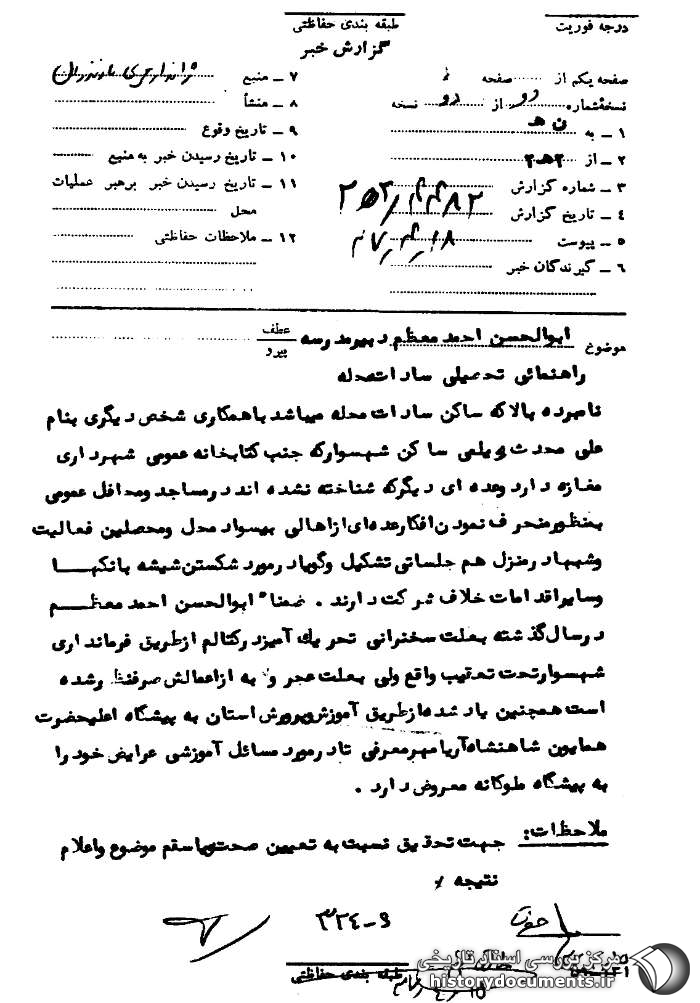 درجه فوریت
طبقه بندی حفاظتی
گزارش خبر
صفحه یکم از صفحه
نسخهٔ شماره دو از دو نسخه
۱ ـ به ن ھ
۲ ـ از ۲ھ۲
۳ ـ شماره گزارش
۴ ـ تاریخ گزارش
۵ ـ پیوست
۶ ـ گیرندگان خبر
۷ ـ منبع ژاندارمری مازندران
۸ ـ منشأ
۹ ـ تاریخ وقوع
۱۰ ـ تاریخ رسیدن خبر به منبع
۱۱ ـ تاریخ رسیدن خبر برهبر عملیات
محل
۱۲ ـ ملاحظات حفاظتی
موضوع ابوالحسن احمد معظم دبیرمدرسه
عطف
پیرو
راهنمائی تحصیلی سادات محله
نامبرده بالا که ساکن سادات محله میباشد با همکاری شخص دیگری بنام
علی محدث ساکن شهسوار که جنب کتابخانه عمومی شهرداری
مغازه دارد وعده ای دیگر که شناخته نشده اند درمساجد ومحافل عمومی
بمنظورمنحرف نمودن افکارعده ای ازاهالی بیسواد محل ومحصلین فعالیت
وشبها درمنزل هم جلساتی تشکیل وگویا درمورد شکستن شیشه بانکها
وسایراقدامات خلاف شرکت دارند . ضمنا" ابوالحسن احمد معظم
درسال گذشته بعلت سخنرانی تحریک آمیزدرکتالم ازطریق فرمانداری
شهسوارتحت تعقیب واقع ولی بعلت عجز و به ازاعمالش صرفنظر شده
است همچنین یاد شده ازطریق آموزش وپرورش استان به پیشگاه اعلیحضرت
همایون شاهنشاه آریامهرمعرفی تا درمورد مسائل آموزشی عرایض خود را
به پیشگاه ملوکانه معروض دارد .
ملاحظات: جهت تحقیق نسبت به تعیین صحت ویاسقم موضوع واعلام
نتیجه
۳۲۴-۹
طبقه بندی حفاظتی
مرکز بررسی اسناد تاریخی
historydocuments.ir